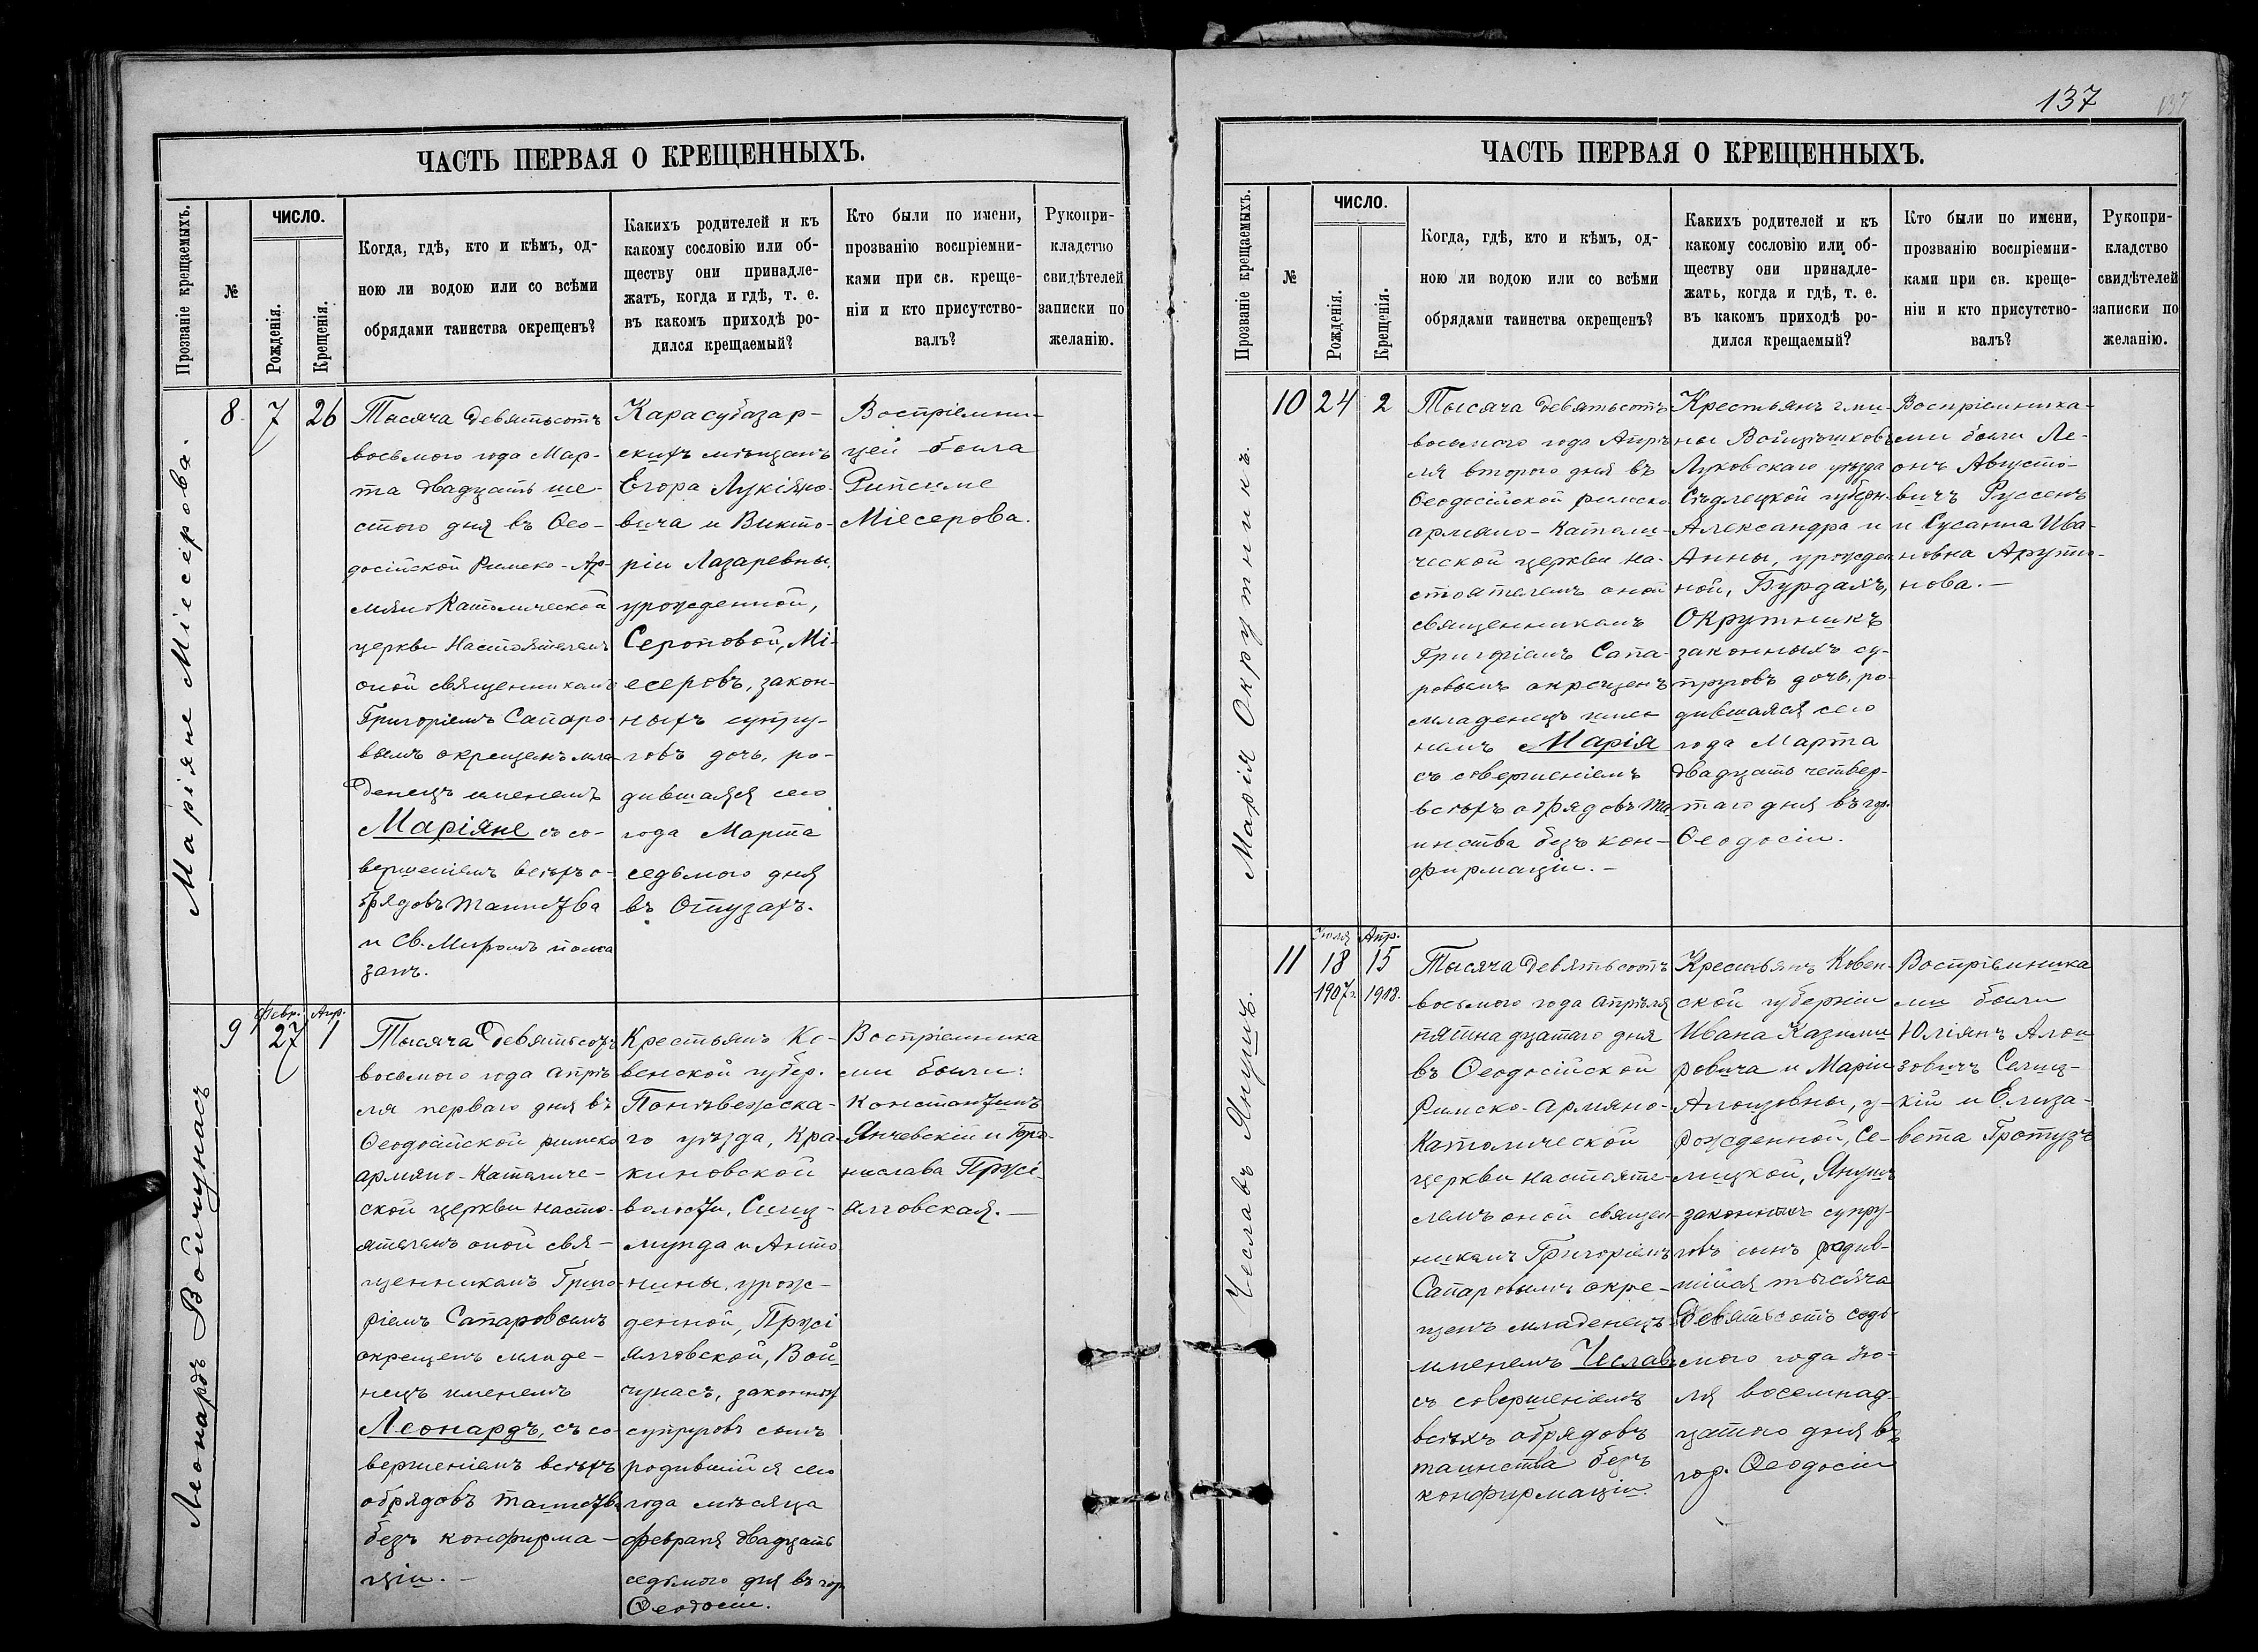 ЧАСТЬ ПЕРВАЯ О КРЕЩЕННЫХЪ.
Прозваніе крещаемыхъ.
№
ЧИСЛО.
Рожденія.
Крещенія.
Когда, гдѣ, кто и кѣмъ, од-
ною ли водою или со всѣми
обрядами таинства окрещенъ?
Каихъ родителей и къ
какому сословію или об-
ществу они принадле-
жатъ, когда и гдѣ, т. е.
въ какомъ приходѣ ро-
дился крещаемый?
Кто были по имени,
прозванію воспріемни-
ками при св. креще-
ніи и кто присутство-
валъ?
Рукопри-
кладство
свидѣтелей
записки по
желанію.
Маріяне Міесерова.
8.
7
26
Тысяча девятьсотъ
восьмого года Мар-
та двадцать ше-
стого дня въ Ѳео-
досійской Римско-Ар-
мяно Католической
церкви Настоятелемъ
оной священникомъ
Григоріемъ Сапаро-
вымъ окрещенъ мла-
денецъ именемъ
Маріяне съ со-
вершеніемъ всѣхъ о-
брядовъ таинства
и Св. Миромъ пома
занъ.
Карасубазар-
скихъ мѣщанъ
Егора Лукіяно-
вича и Викто-
ріи Лазаревны,
урожденной,
Сероповой, Мі-
есеровъ, закон-
ныхъ супру-
говъ дочь, ро-
дившаяся сего
года Марта
седьмого дня
въ Отузахъ.
Воспріемни-
цей была
Рипсиме
Міесерова.
Леонардъ Войчунасъ
9
Февр.
27
Апр.
1
Тысяча девятьсотъ
восьмого года апрѣ
ля перваго дня въ
Ѳеодосійской римско
армяно-Католиче-
ской церкви насто-
ятелемъ оной свя-
щенникомъ Григо-
ріемъ Сапаровымъ
окрещенъ младе-
нецъ именемъ
Леонардъ, съ со-
вершеніемъ всѣхъ
обрядовъ таинства
безъ конфирма-
ціи. -
Крестьянъ Ко-
венской губер.
Поневежска-
го уѣзда, Кра-
киновской
волости, Сигиз-
мунда и Анто
нины, урож-
денной, Прусі
ялговской, Вой
чунасъ, законныхъ
супруговъ сынъ
родившійся сего
года мѣсяца
февраля двадцать
седьмого дня въ гор.
Ѳеодосіи.
Воспріемника
ми были:
Константинъ
Янчевскій и Бро-
нислава Прусі-
ялговская. —
137
137
ЧАСТЬ ПЕРВАЯ О КРЕЩЕННЫХЪ.
Прозваніе крещаемыхъ.
№
ЧИСЛО.
Рожденія.
Крещенія.
Когда, гдѣ, кто и кѣмъ, од-
ною ли водою или со всѣми
обрядами таинства окрещенъ?
Какихъ родителей и къ
какому сословію или об-
ществу они принадле-
жатъ, когда и гдѣ, т. е.
въ какомъ приходѣ ро-
дился крещаемый?
Кто были по имени,
прозванію воспріемни-
ками при св. креще-
ніи и кто присутство-
валъ?
Рукопри-
кладство
свидѣтелей
записки по
желанію.
Марія Окрутникъ.
10
24
2
Тысяча девятьсотъ
восьмого года Апрѣ
ля второго дня въ
Ѳеодосійской римско
армяно-Католи-
ческой церкви На-
стоятелемъ оной
священникомъ
Григоріемъ Сапа-
ровымъ окрещенъ
младенецъ имен
немъ Марія
съ совершеніемъ
всѣхъ обрядовъ та
инства безъ кон-
фирмаціи. -
Крестьянъ гми-
ны Войцѣшковъ
Луковскаго уѣзда
Сѣдлецкой губерн.
Александра и
Анны, урожден
ной, Бурдахъ,
Окрутникъ
законныхъ су-
пруговъ дочь, ро-
дившаяся сего
года Марта
двадцать четвер-
таго дня въ гор.
Ѳеодосіи.
Воспріемника-
ми были Ле-
онъ Августо-
вичъ Руссенъ
и Сусанна Ива-
новна Арутю-
нова. —
Чеславъ Янушъ.
11
Іюля
18
1907 г.
Апр.
15
1908.
Тысяча девятьсотъ
восьмого года апрѣля
пятнадцатаго дня
въ Ѳеодосійской
Римско-армяно-
Католической
церкви настояте-
лемъ оной священ-
никомъ Григоріемъ
Сапаровымъ окре-
щенъ младенецъ
именемъ Чеславъ
съ совершеніемъ
всѣхъ обрядовъ
таинства безъ
конфирмаціи.
Крестьянъ Ковен-
ской губерніи
Ивана Казими
ровича и Маріи
Алоизовны, у-
рожденной, Се-
лицкой, Янушъ
законныхъ супру-
говъ сынъ родив-
шійся тысяча
девятьсотъ седь
мого года Ію-
ля восемнад-
цатаго дня въ
гор. Ѳеодосіи
Воспріемника
ми были
Юліянъ Алои
зовичъ Селиц-
кій и Елиза-
вета Гротузъ